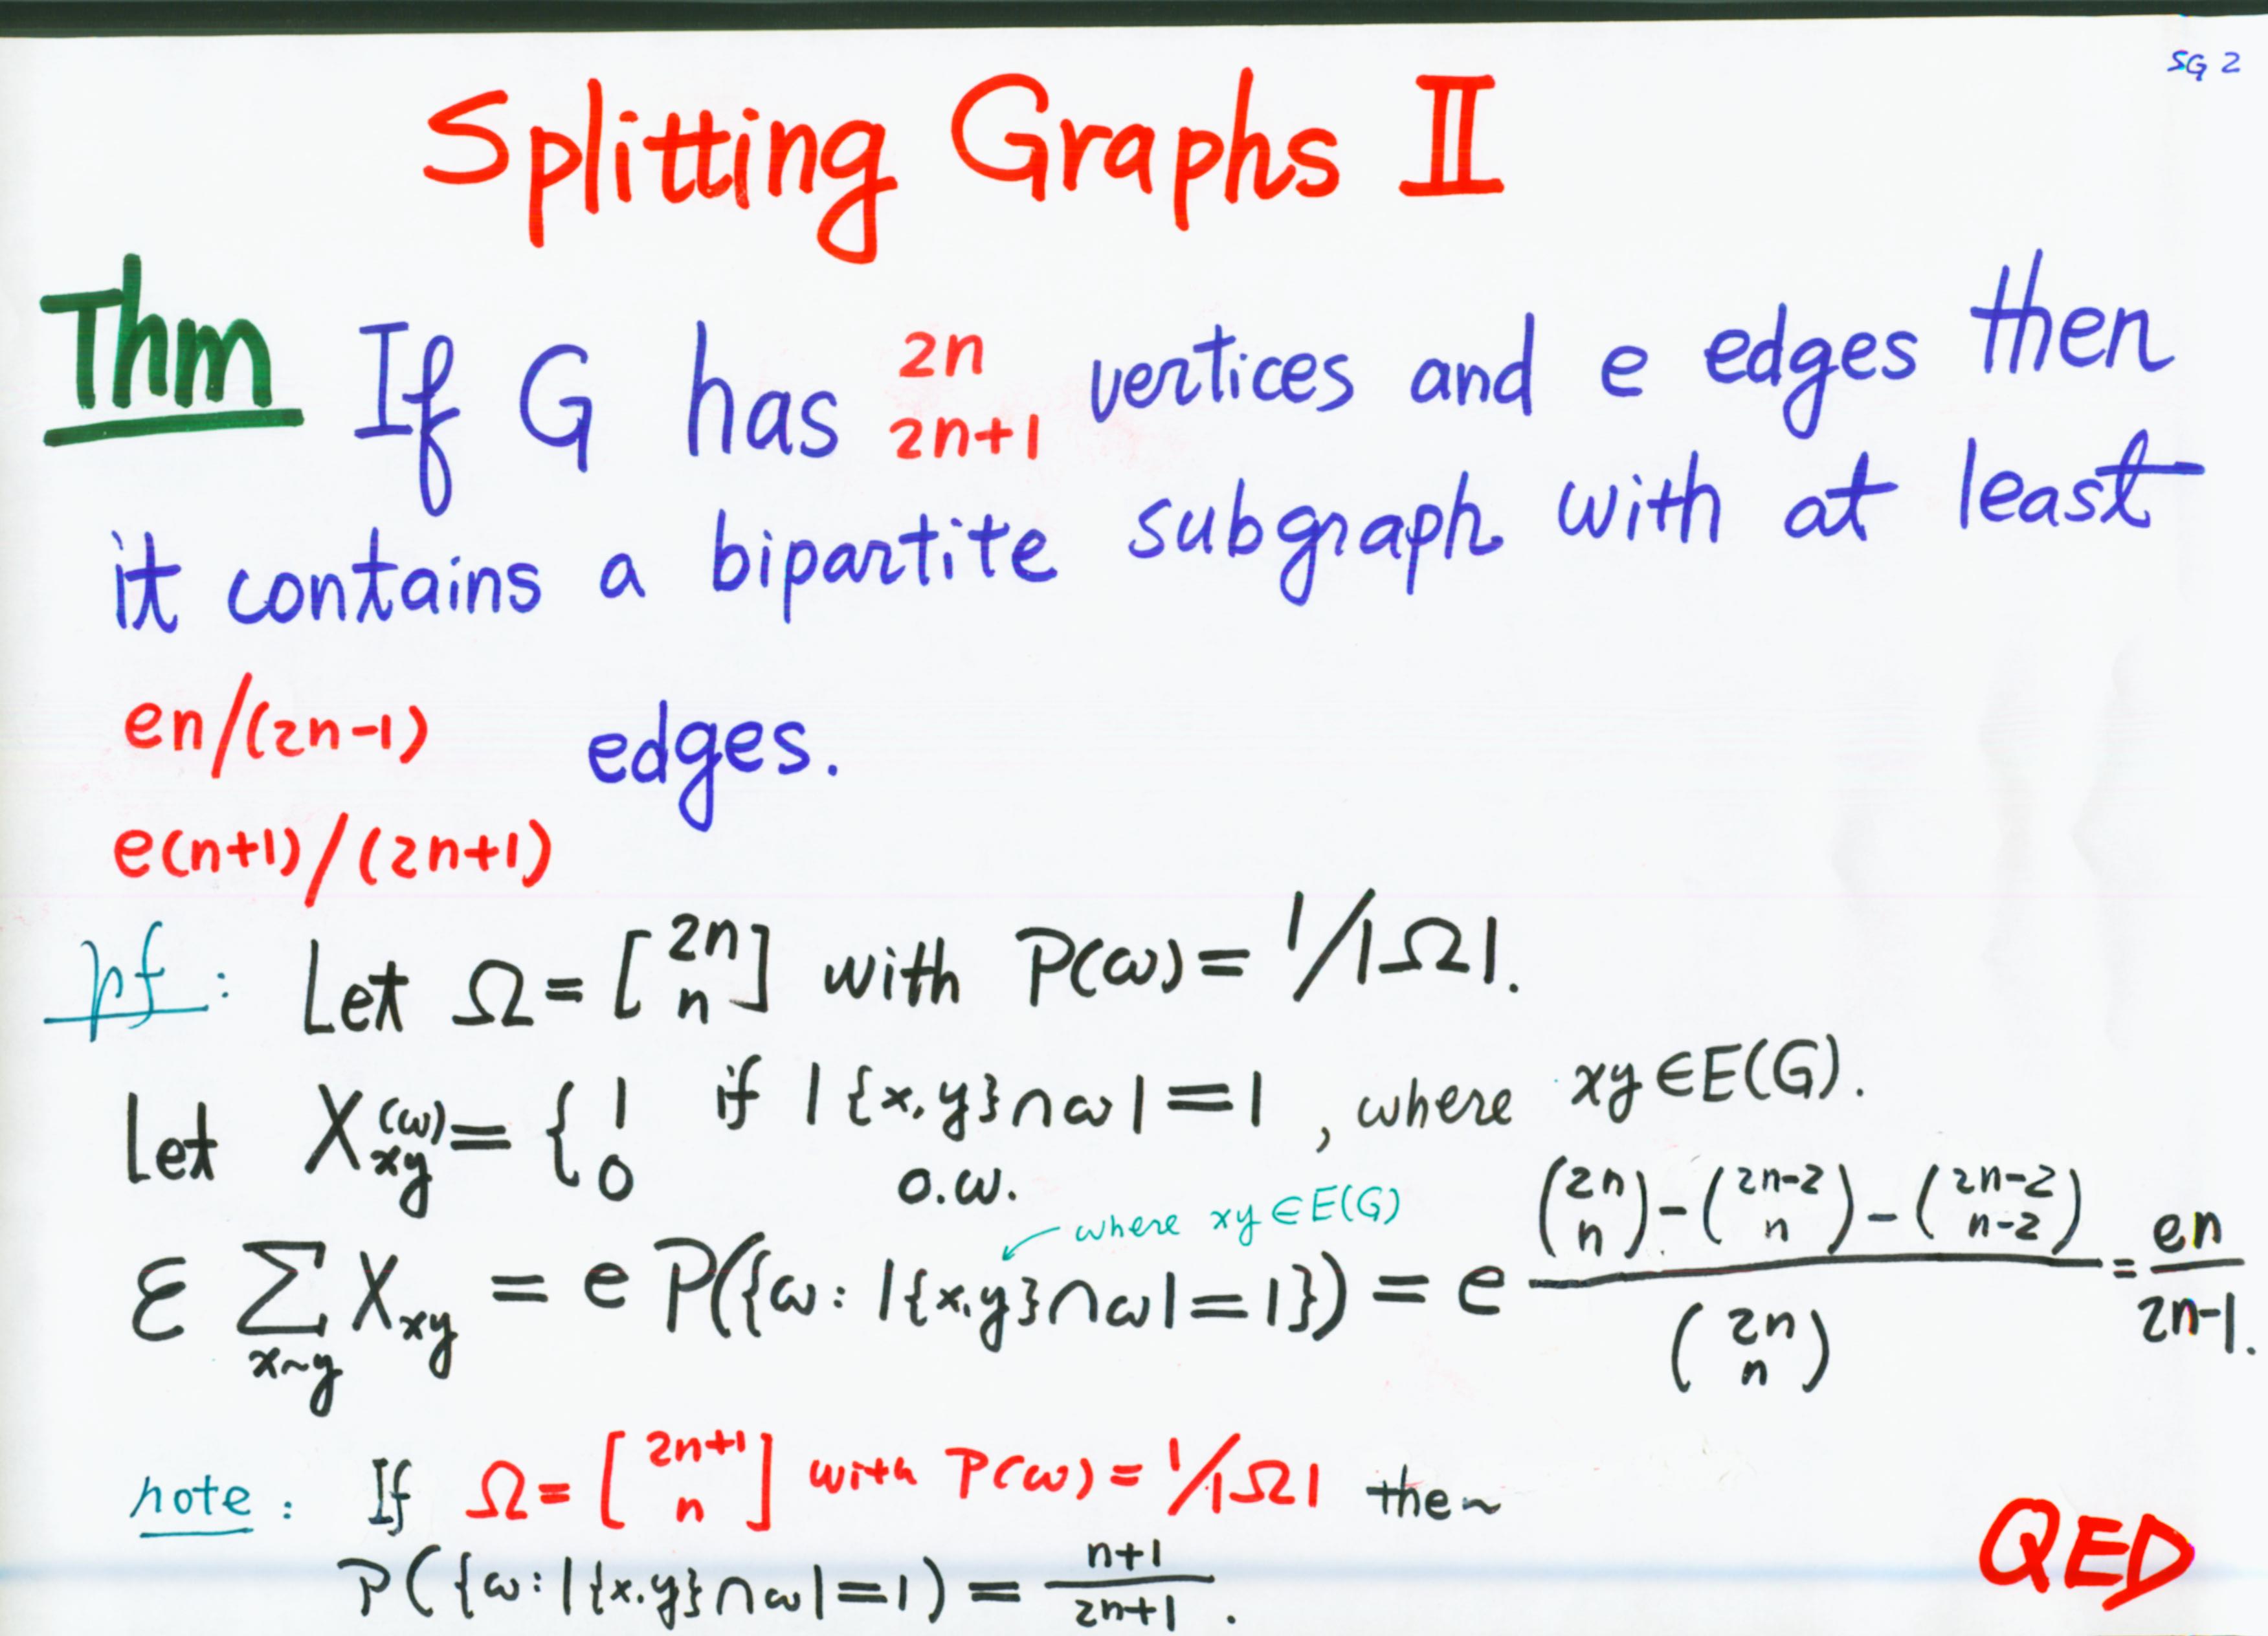 SG 2
Splitting Graphs II
Thm If G has 2n vertices and e edges then
2n+1
it contains a bipartite subgraph with at least
en/(2n-1) edges.
e(n+1)/(2n+1)
pf: Let Ω = [2n n] with P(ω) = 1/|Ω|.
Let X_xy(ω) = { 1 if |{x,y}∩ω| = 1, where xy ∈ E(G).
0 o.w.
where xy ∈ E(G)
ℰ ∑_{x~y} X_xy = e P({ω: |{x,y}∩ω| = 1}) = e ((2n n) - (2n-2 n) - (2n-2 n-2)) / (2n n) = en / 2n-1.
note: If Ω = [2n+1 n] with P(ω) = 1/|Ω| then
P({ω: |{x,y}∩ω| = 1) = n+1 / 2n+1.
QED